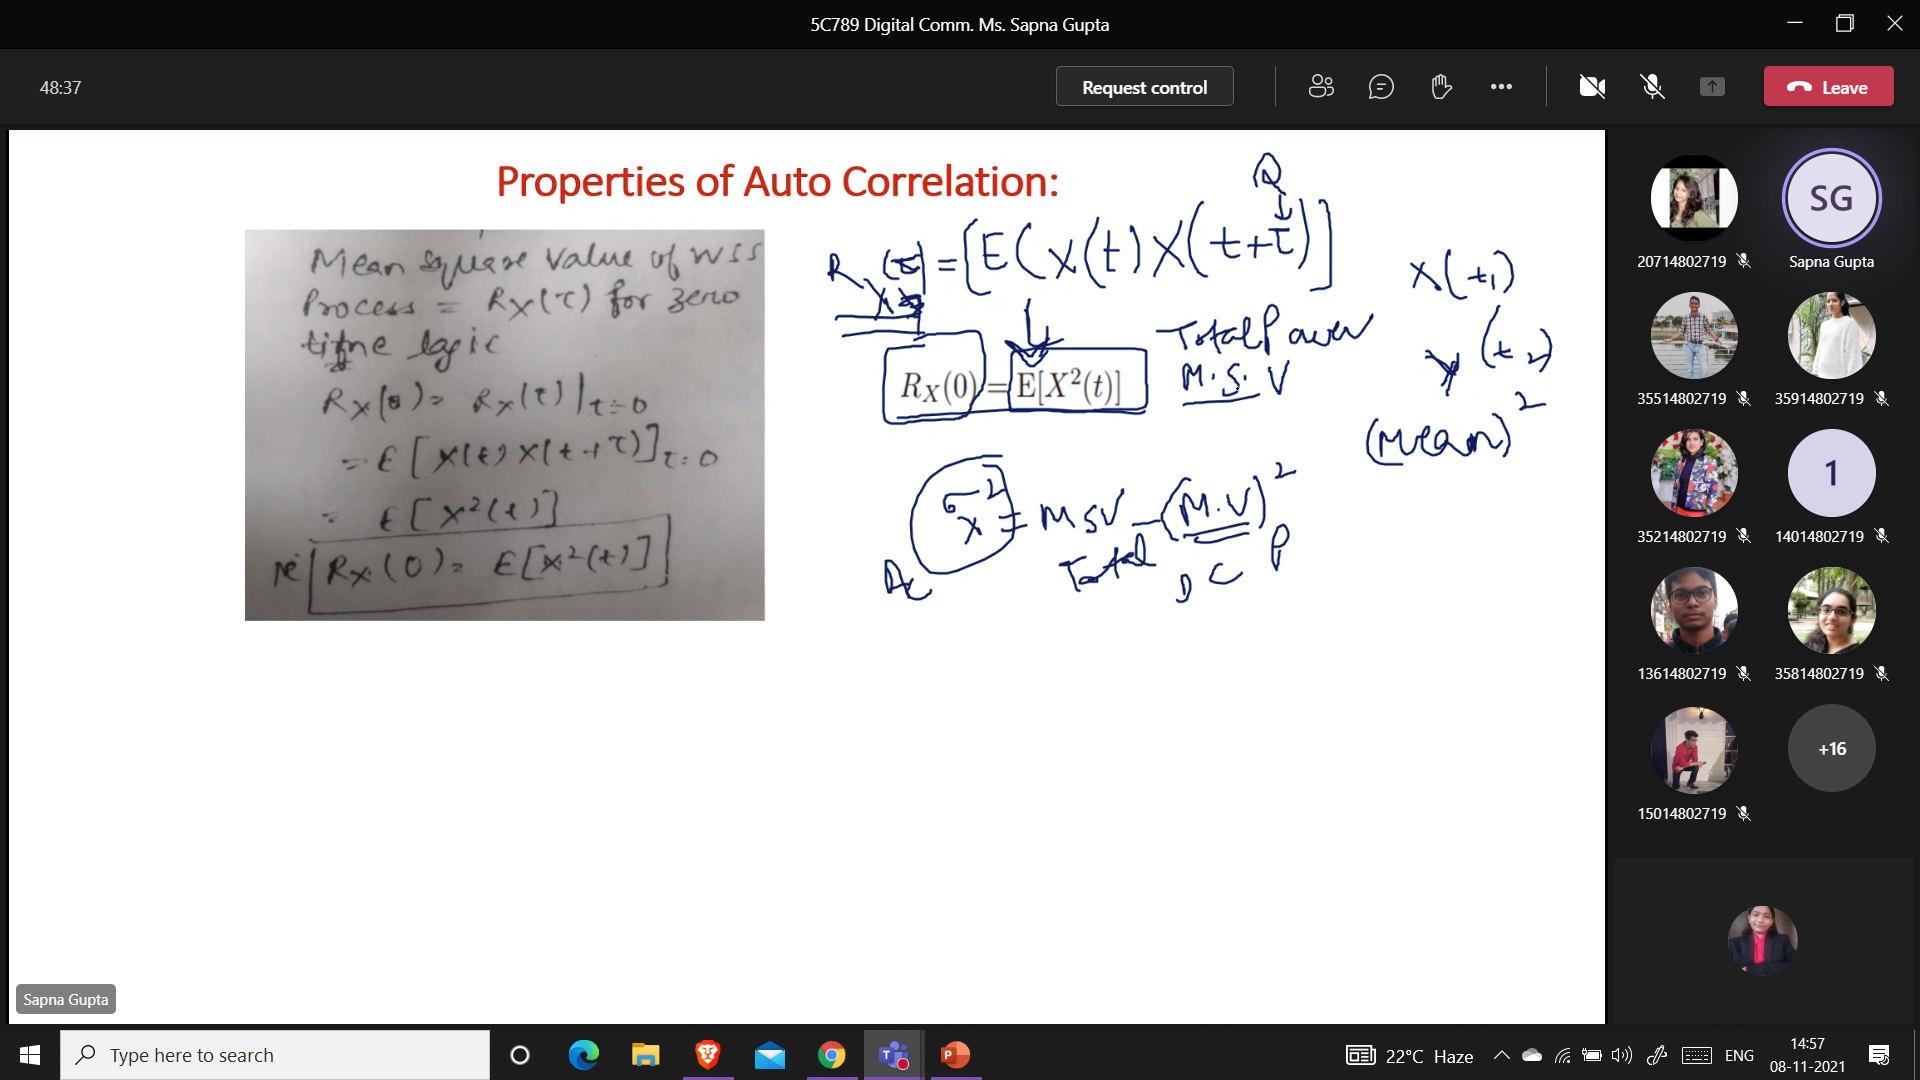 5C789 Digital Comm. Ms. Sapna Gupta
48:37
Request control
Leave
Properties of Auto Correlation:
Mean square value of WSS
Process = RX(τ) for zero
time logic
RX(0) = RX(τ)|τ=0
= E[X(t) X(t+τ)]τ=0
= E[X²(t)]
RX(0) = E[X²(t)]
RX(τ) = [E(X(t) X(t+τ)]
Total Power
M.S.V
RX(0) = E[X²(t)]
X(t1)
(t2)
(Mean)²
σx² = MSV - (M.V)²
Total
DC P
AC
20714802719
SG
Sapna Gupta
35514802719
35914802719
35214802719
1
14014802719
13614802719
35814802719
15014802719
+16
Sapna Gupta
Type here to search
22°C Haze
ENG
14:57
08-11-2021